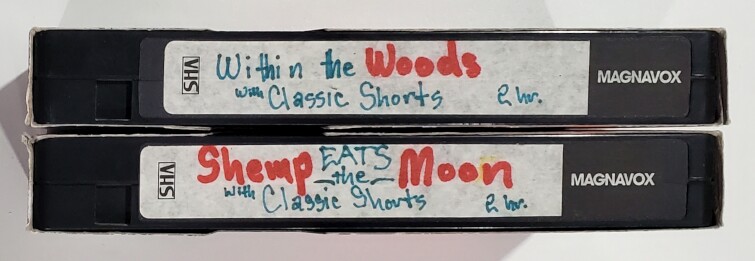 VHS
Within the Woods
with Classic Shorts 2 hr.
MAGNAVOX
VHS
Shemp EATS the Moon
with Classic Shorts 2 hr.
MAGNAVOX